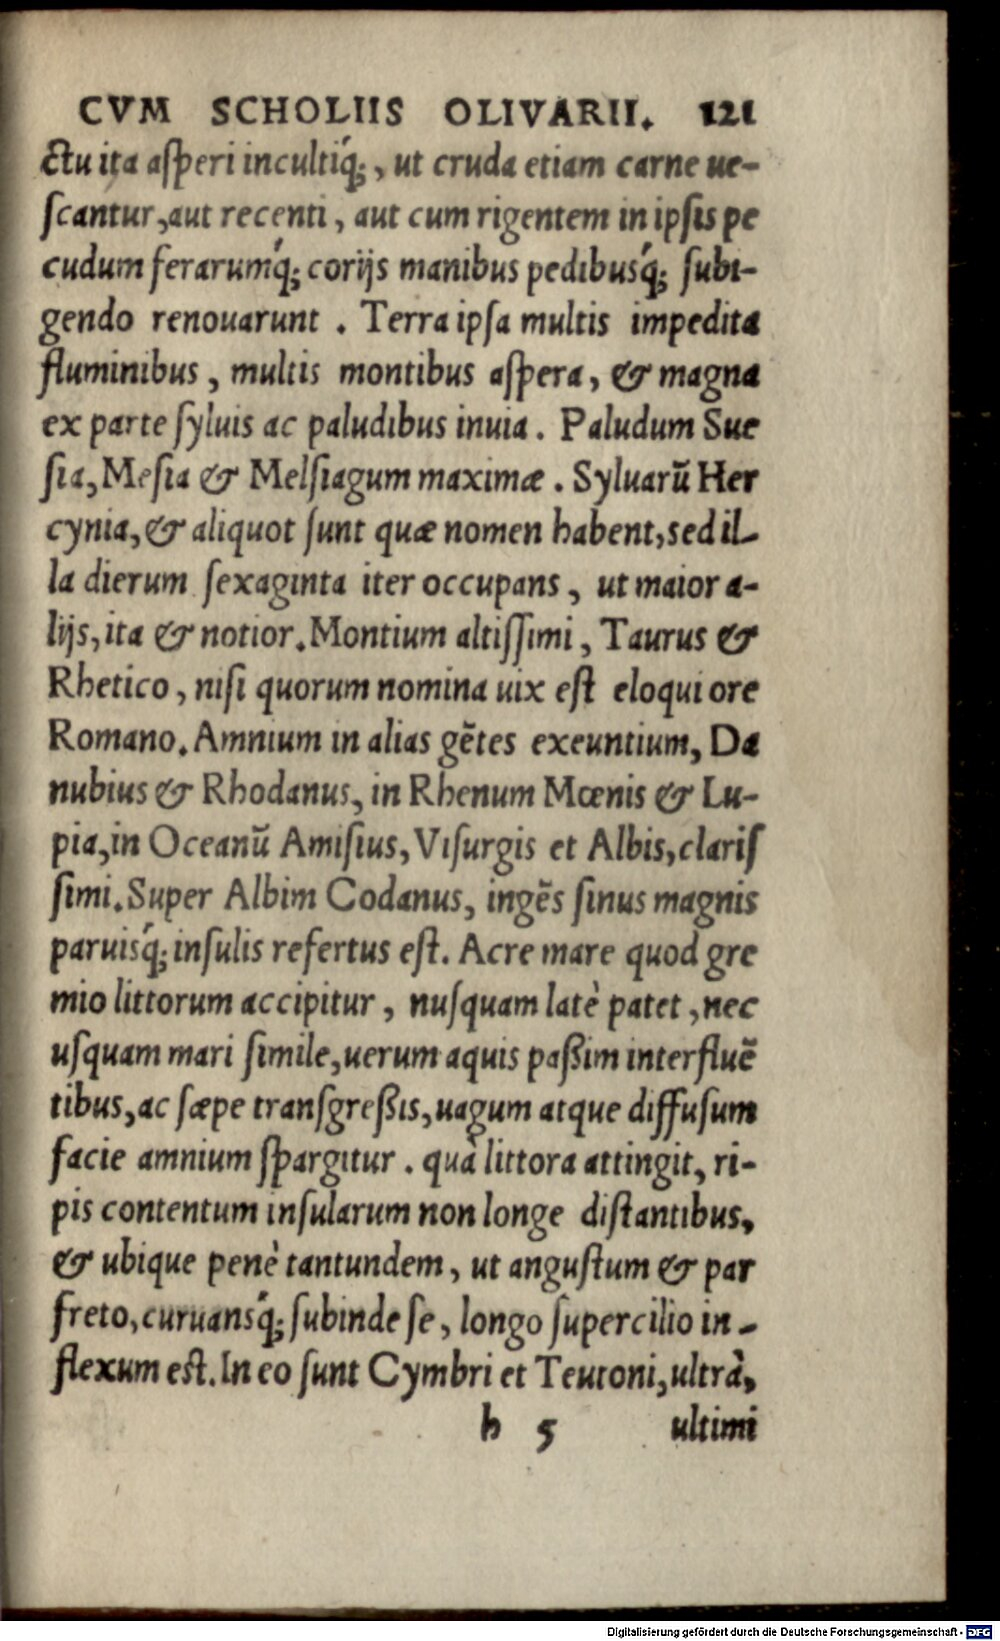 CVM SCHOLIIS OLIVARII. 121
ctu ita aſperi incultiq́;, ut cruda etiam carne ue-
ſcantur, aut recenti, aut cum rigentem in ipſis pe
cudum ferarumq́; corijs manibus pedibusq́; ſubi-
gendo renouarunt. Terra ipſa multis impedita
fluminibus, multis montibus aſpera, & magna
ex parte ſyluis ac paludibus inuia. Paludum Sue
ſia, Meſia & Melſiagum maximæ. Syluarū Her
cynia, & aliquot ſunt quæ nomen habent, sed il-
la dierum ſexaginta iter occupans, ut maior a-
lijs, ita & notior. Montium altiſſimi, Taurus &
Rhetico, niſi quorum nomina uix eſt eloqui ore
Romano. Amnium in alias gētes exeuntium, Da
nubius & Rhodanus, in Rhenum Mœnis & Lu-
pia, in Oceanū Amiſius, Viſurgis et Albis, clariſ
ſimi. Super Albim Codanus, ingēs ſinus magnis
paruisq́; inſulis refertus eſt. Acre mare quod gre
mio littorum accipitur, nuſquam latè patet, nec
uſquam mari ſimile, uerum aquis paßim interfluē
tibus, ac ſæpe tranſgreßis, uagum atque diffuſum
facie amnium ſpargitur. quà littora attingit, ri-
pis contentum inſularum non longe diſtantibus,
& ubique penè tantundem, ut anguſtum & par
freto, curuansq́; ſubinde ſe, longo ſupercilio in-
flexum eſt. In eo ſunt Cymbri et Teutoni, ultrà,
h 5 ultimi
Digitalisierung gefördert durch die Deutsche Forschungsgemeinschaft - DFG